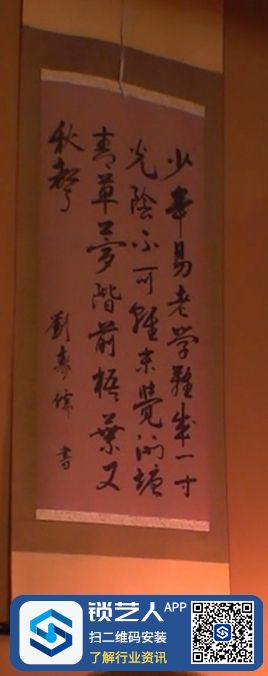 少年易老学難成一寸
光陰不可輕未覺池塘
春草夢階前梧葉又
秋聲
劉 書
锁艺人APP
扫二维码安装
了解行业资讯